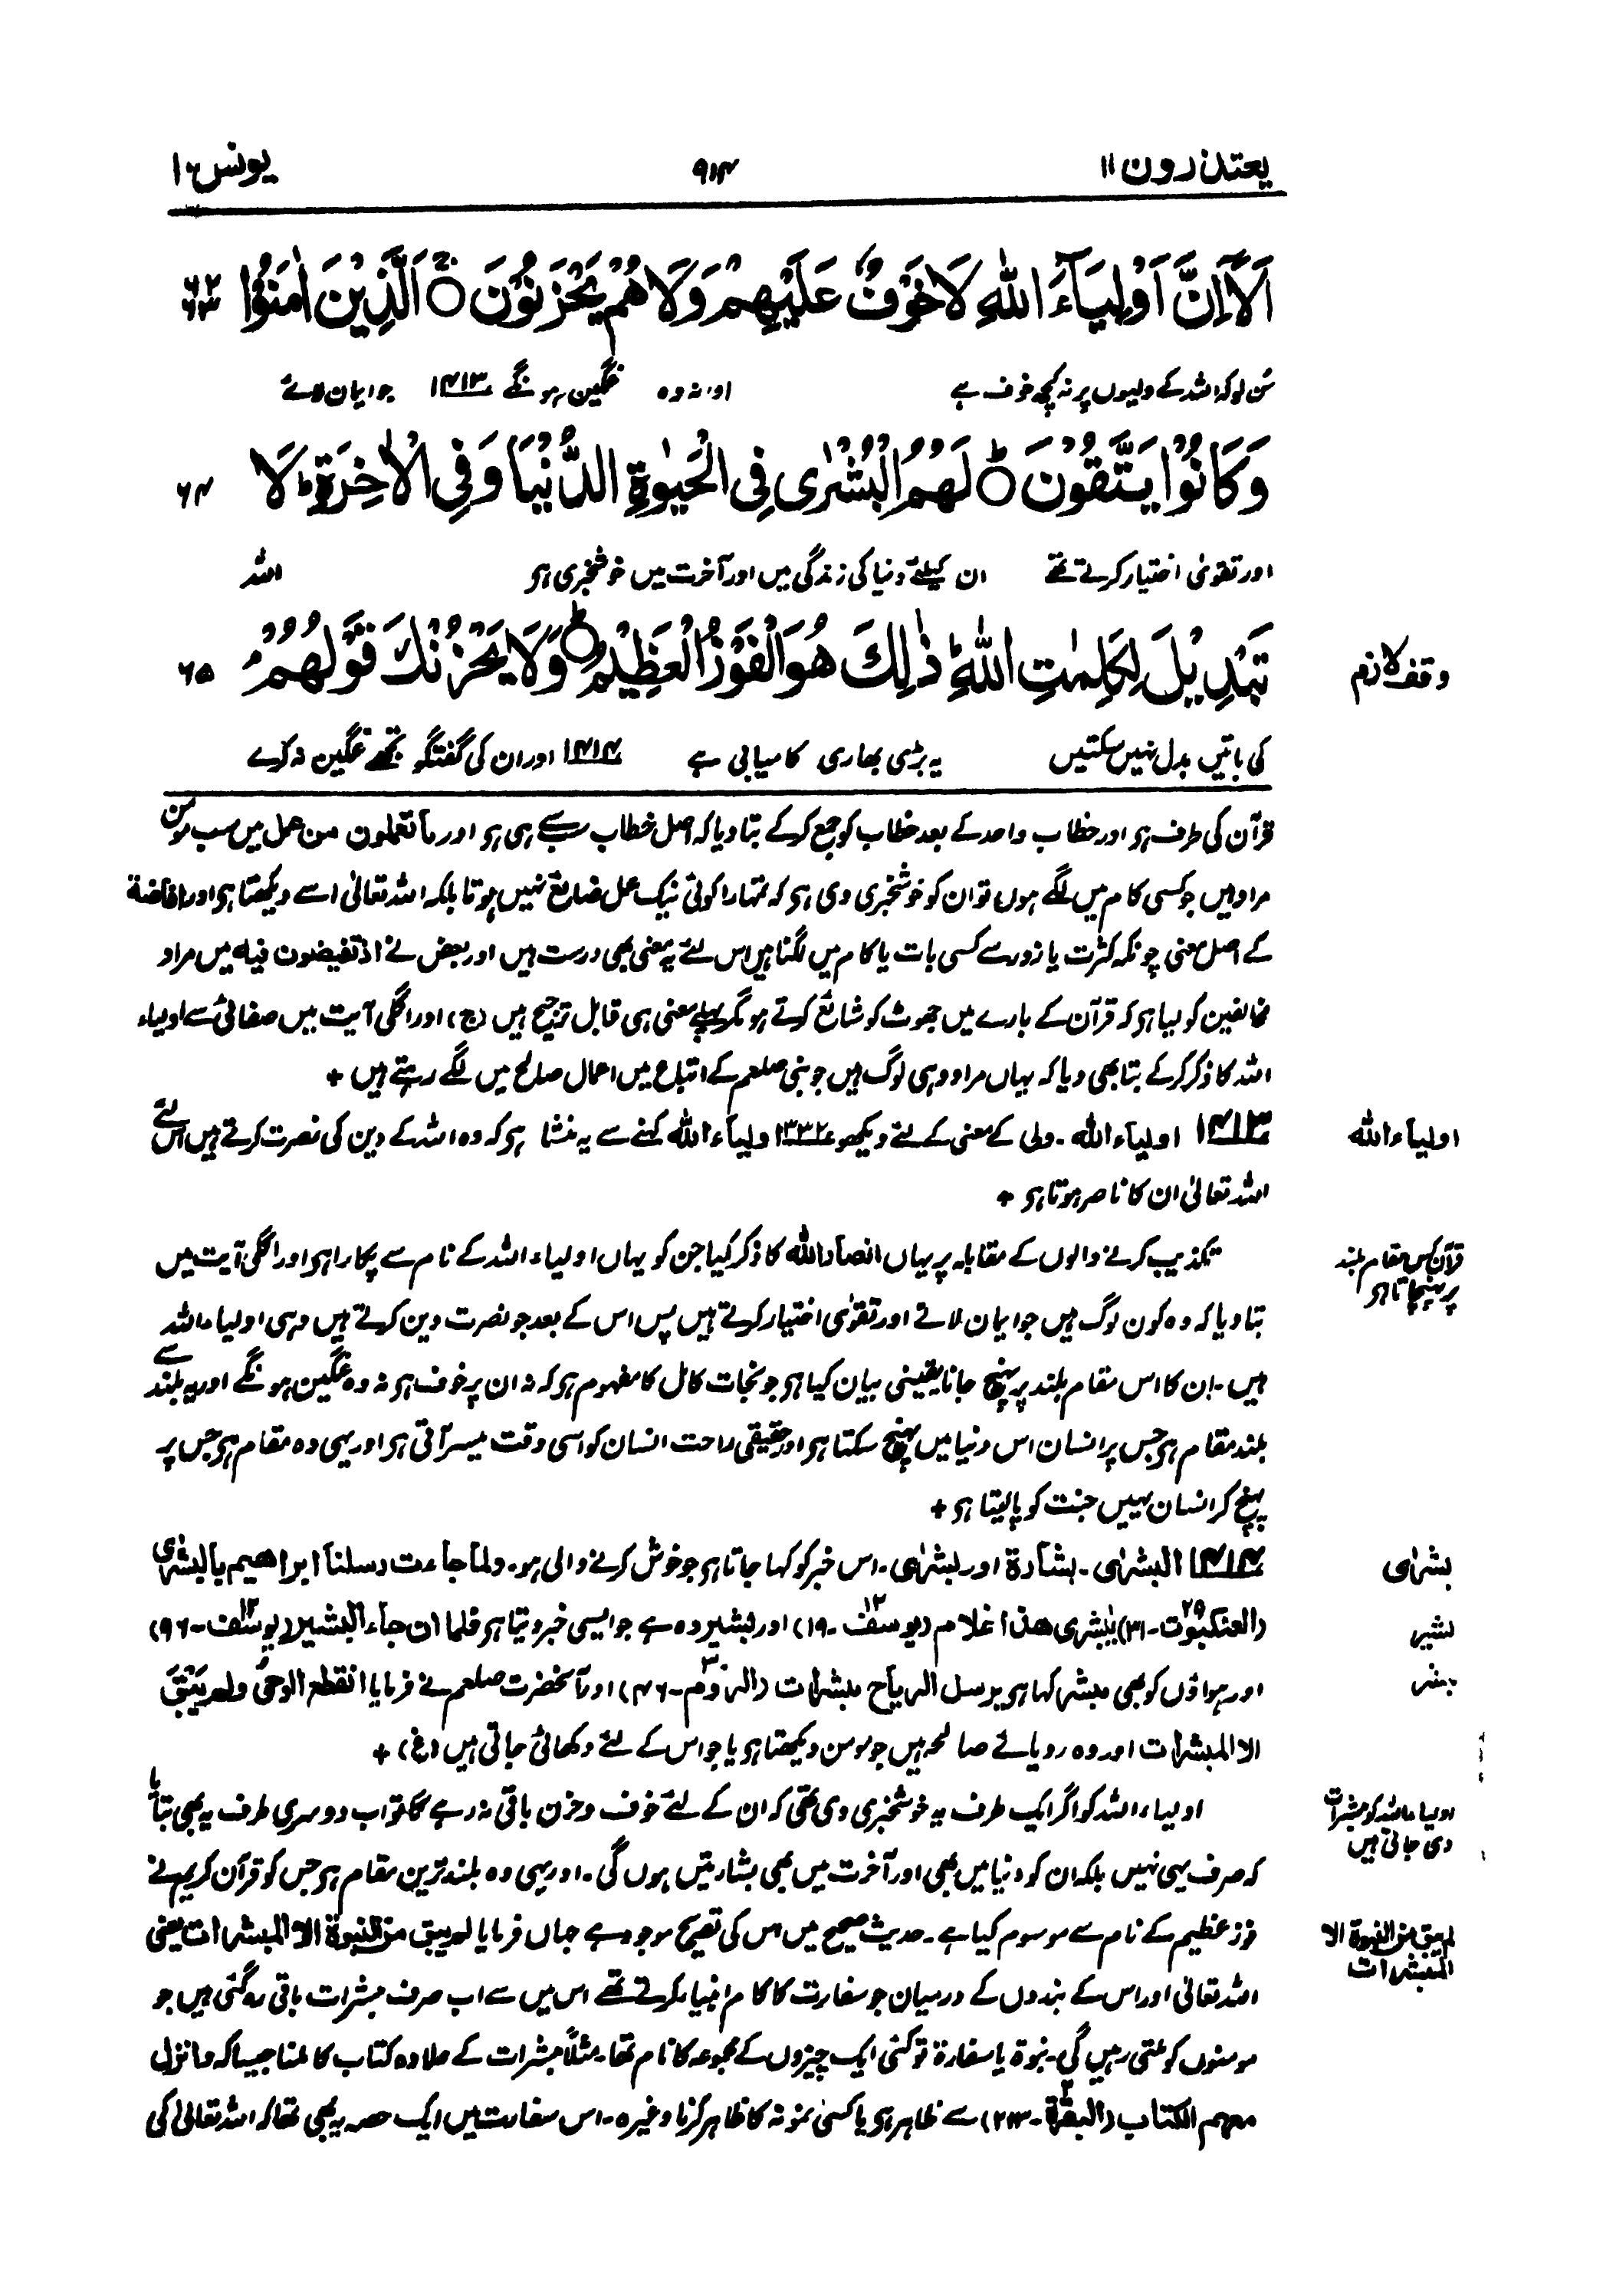 یعتذرون ۱۱
۹۱۴
یونس ۱۰
اَلَآ اِنَّ اَوْلِيَآءَ اللّٰهِ لَا خَوْفٌ عَلَيْهِمْ وَلَا هُمْ يَحْزَنُوْنَ ۝ اَلَّذِيْنَ اٰمَنُوْا ۶۲ ۶۳
سُن لو کہ اللہ کے ولیوں پر نہ کچھ خوف ہے اور نہ وہ غمگین ہونگے ۱۴۱۳ جو ایمان لائے
وَكَانُوْا يَتَّقُوْنَ ۝ لَهُمُ الْبُشْرٰى فِى الْحَيٰوةِ الدُّنْيَا وَفِى الْاٰخِرَةِ ؕ لَا ۶۴
اور تقویٰ اختیار کرتے تھے ان کیلئے دنیا کی زندگی میں اور آخرت میں خوشخبری ہی اللہ
تَبْدِيْلَ لِكَلِمٰتِ اللّٰهِ ؕ ذٰلِكَ هُوَ الْفَوْزُ الْعَظِيْمُ ۝ وَلَا يَحْزُنْكَ قَوْلُهُمْ ۘ ۶۵
وقف لازم
کی باتیں بدل نہیں سکتیں یہ بڑی بھاری کامیابی ہے ۱۴۱۴ اور ان کی گفتگو تجھے غمگین نہ کرے
قرآن کی طرف ہی اور خطاب واحد کے بعد خطاب کو جمع کرکے بتا دیا کہ اصل خطاب سب سے ہی ہی اور ما تعملون من عمل میں سب مومن
مراد ہیں جو کسی کام میں لگے ہوں تو ان کو خوشخبری دی ہی کہ تمہارا کوئی نیک عمل ضایع نہیں ہوتا بلکہ اللہ تعالیٰ اسے دیکھتا ہی اور افاضة
کے اصل معنی چونکہ کثرت یا زور سے کسی بات یا کام میں لگنا ہیں اس لئے یہ معنی بھی درست ہیں اور بعض نے اذ تفیضون فیه میں مراد
مخالفین کو لیا ہی کہ قرآن کے بارے میں جھوٹ کو شایع کرتے ہو مگر پہلے معنی ہی قابل ترجیح ہیں (ج) اور اگلی آیت میں صفائی سے اولیاء
اللہ کا ذکر کرکے بتا بھی دیا کہ یہاں مراد وہی لوگ ہیں جو نبی صلعم کے اتباع میں اعمال صالح میں لگے رہتے ہیں +
اولیاء اللہ
۱۴۱۳ اولیاء اللہ ۔ ولی کے معنی کے لئے دیکھو ۱۳۳۲ اولیاء اللہ کہنے سے یہ منشا ہی کہ وہ اللہ کے دین کی نصرت کرتے ہیں اس لئے
اللہ تعالیٰ ان کا ناصر ہوتا ہی +
قرآن کس مقام بلند
پر پہنچاتا ہی
تکذیب کرنے والوں کے مقابلہ پر یہاں انصار اللہ کا ذکر کیا جن کو یہاں اولیاء اللہ کے نام سے پکارا ہی اور اگلی آیت میں
بتا دیا کہ وہ کون لوگ ہیں جو ایمان لاتے اور تقویٰ اختیار کرتے ہیں پس اس کے بعد جو نصرت دین کرتے ہیں وہی اولیاء اللہ
ہیں ۔ ان کا اس مقام بلند پر پہنچ جانا یقینی بیان کیا ہی جو نجات کامل کا مفہوم ہی کہ نہ ان پر خوف ہی نہ وہ غمگین ہونگے اور یہ بلند سے
بلند مقام ہی جس پر انسان اس دنیا میں پہنچ سکتا ہی اور حقیقی راحت انسان کو اسی وقت میسر آتی ہی اور یہی وہ مقام ہی جس پر
پہنچ کر انسان یہیں جنت کو پا لیتا ہی +
بشرٰی
۱۴۱۴ البشرٰی ۔ بشارة اور بشرٰی ۔ اس خبر کو کہا جاتا ہی جو خوش کرنے والی ہو ۔ ولما جاءت رسلنا ابراھیم بالبشرٰی
بشیر
(العنکبوت ۲۹ ۔ ۳۱) یٰبشرٰی ھذا غلام (یوسف ۱۲ ۔ ۱۹) اور بشیر وہ ہے جو ایسی خبر دیتا ہی فلما ان جاء البشیر (یوسف ۱۲ ۔ ۹۶)
مبشر
اور ہواؤں کو بھی مبشر کہا ہی یرسل الریاح مبشرات (الروم ۳۰ ۔ ۴۶) اور آنحضرت صلعم نے فرمایا انقطع الوحی ولم یبق
الا المبشرات اور وہ رویائے صالحہ ہیں جو مومن دیکھتا ہی یا جو اس کے لئے دکھائی جاتی ہیں (غ) +
اولیاء اللہ کو مبشرات
دی جاتی ہیں
اولیاء اللہ کو اگر ایک طرف یہ خوشخبری دی تھی کہ ان کے لئے خوف و حزن باقی نہ رہے گا تو اب دوسری طرف یہ بھی بتایا
کہ صرف یہی نہیں بلکہ ان کو دنیا میں بھی اور آخرت میں بھی بشارتیں ہوں گی ۔ اور یہی وہ بلند ترین مقام ہی جس کو قرآن کریم نے
لم یبق من النبوة الا
المبشرات
فوز عظیم کے نام سے موسوم کیا ہے ۔ حدیث صحیح میں اس کی تصریح موجود ہے جہاں فرمایا لم یبق من النبوة الا المبشرات یعنی
اللہ تعالیٰ اور اس کے بندوں کے درمیان جو سفارت کا کام انبیاء کرتے تھے اس میں سے اب صرف مبشرات باقی رہ گئی ہیں جو
مومنوں کو ملتی رہیں گی ۔ نبوة یا سفارة تو کئی ایک چیزوں کے مجموعہ کا نام تھا ۔ مثلاً مبشرات کے علاوہ کتاب کا ملنا جیسا کہ و انزل
معہم الکتاب (البقرة ۲ ۔ ۲۱۳) سے ظاہر ہی یا کسی نمونہ کا ظاہر کرنا وغیرہ ۔ اس سفارت میں ایک حصہ یہ بھی تھا کہ اللہ تعالیٰ کی